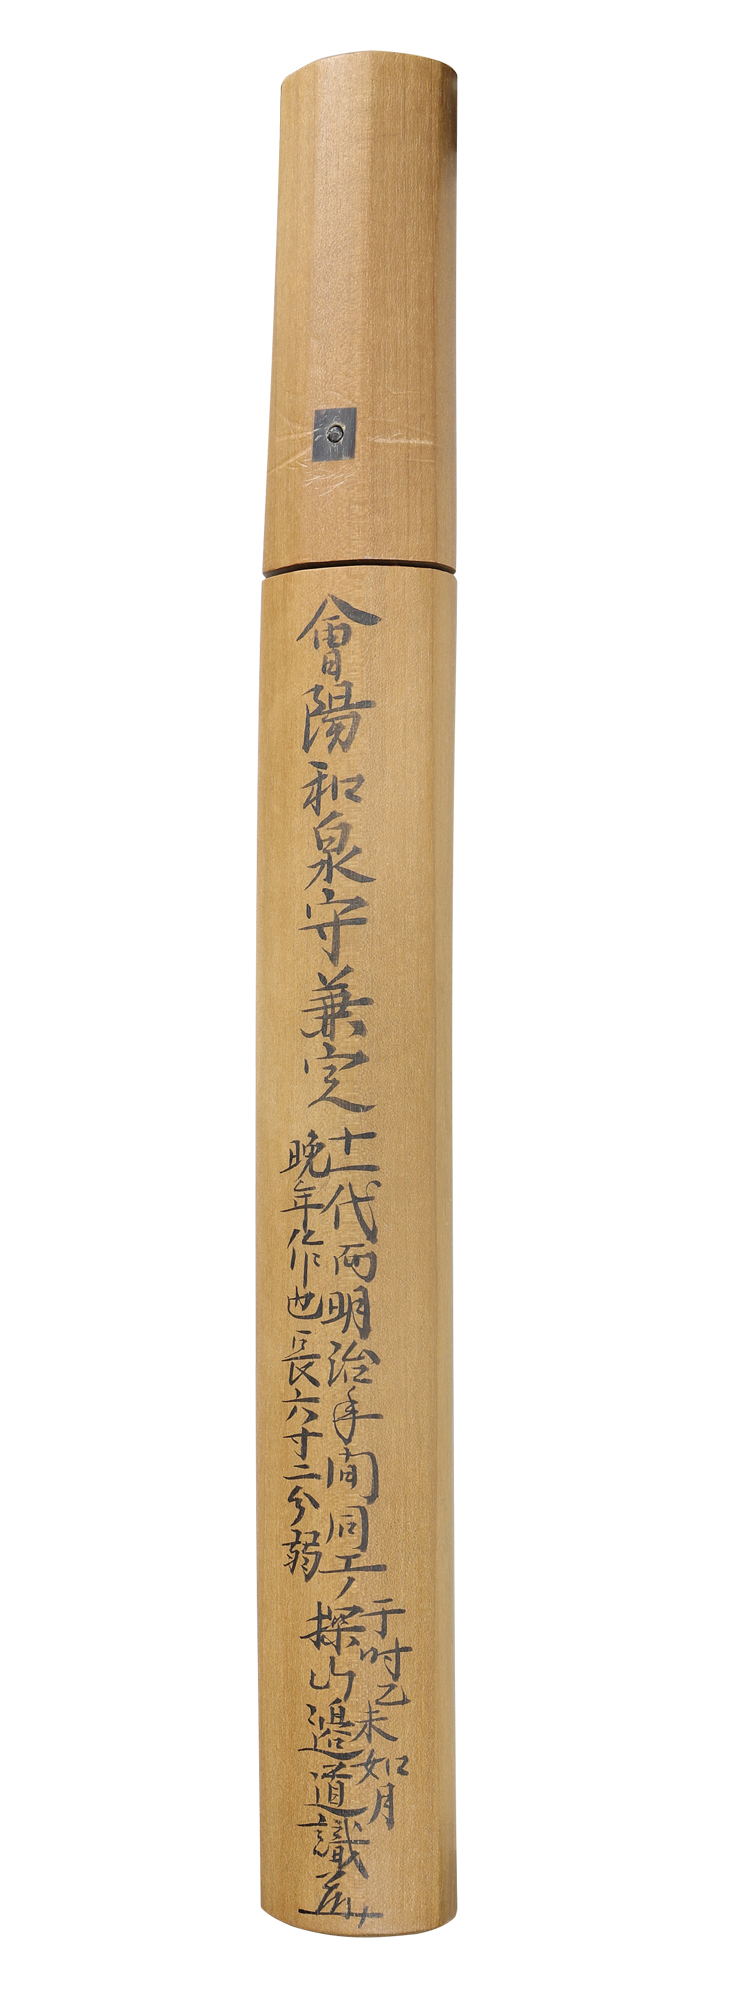 會陽和泉守兼定
十一代而明治年間同工ノ
晩年作也長六寸二分弱
于時乙未如月
探山邉道識